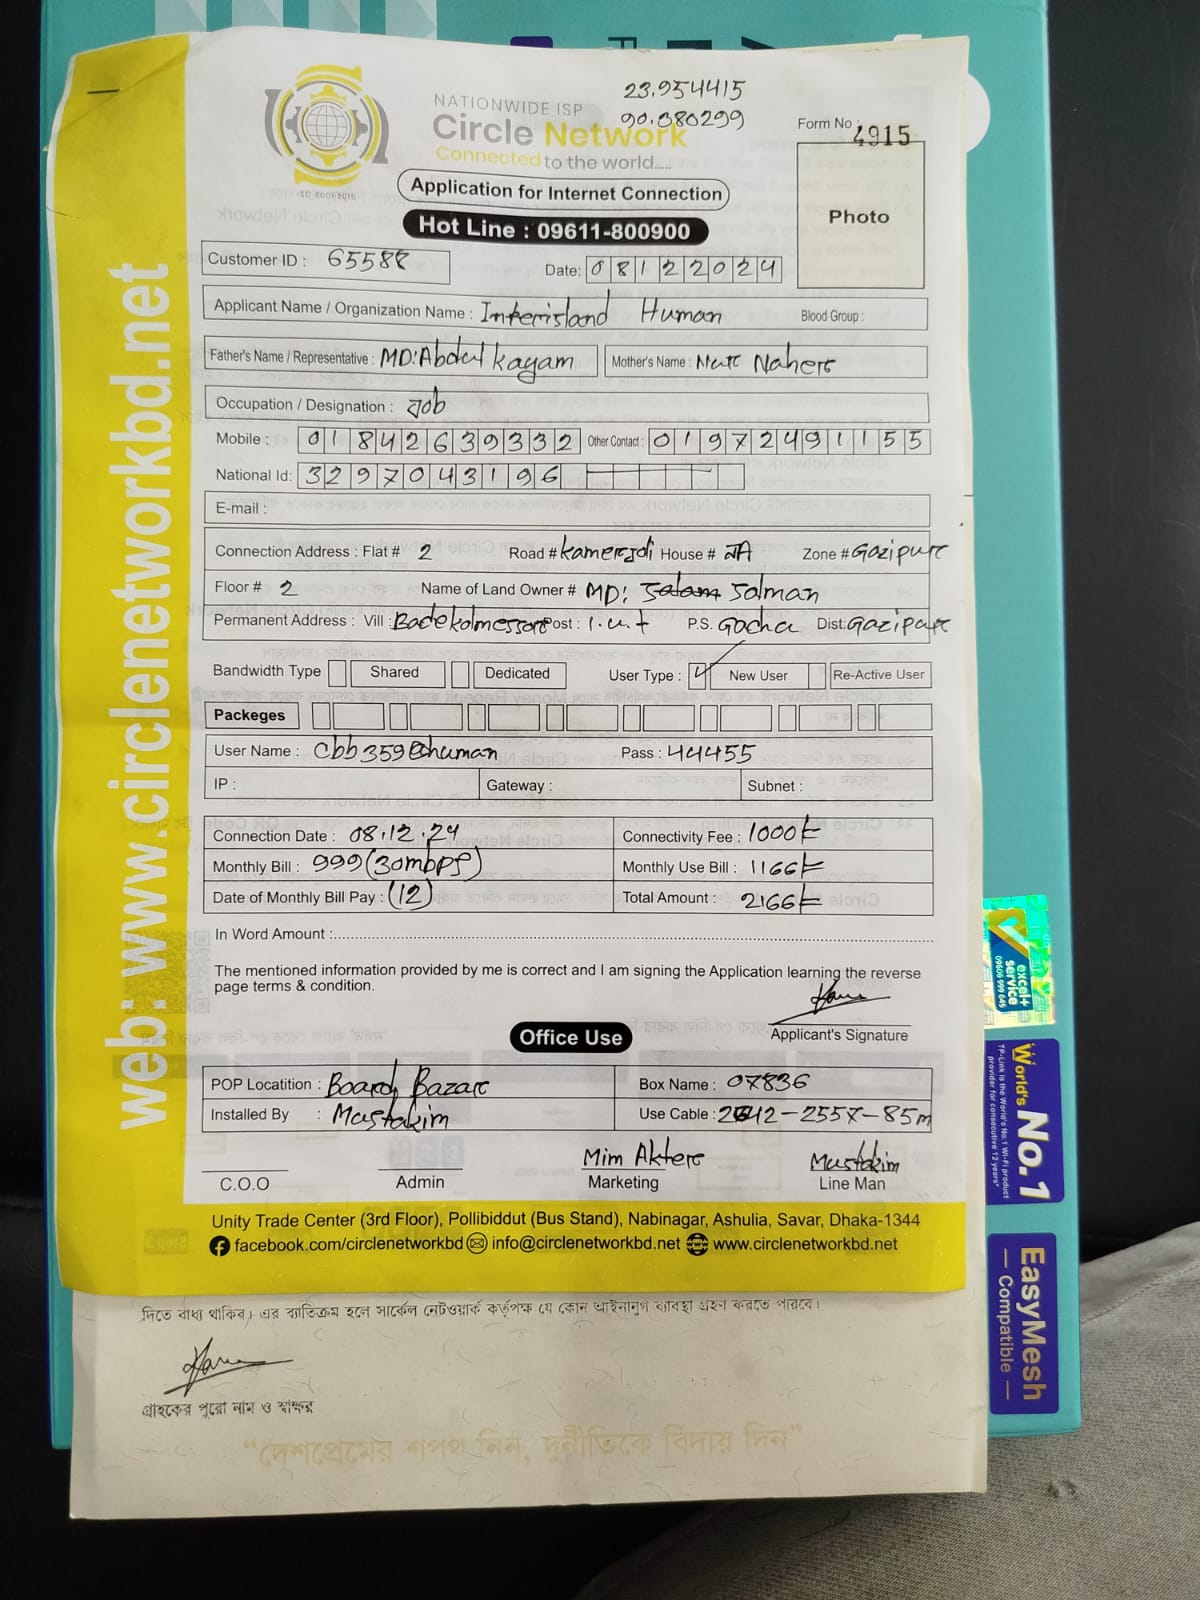 23.954415
90.380299
NATIONWIDE ISP
Circle Network
Connected to the world.....
Form No: 4915
Application for Internet Connection
Photo
Hot Line : 09611-800900
Customer ID : 65588
Date: 08122024
Applicant Name / Organization Name : Interisland Human Blood Group :
Father's Name / Representative : MD:Abdul kayam Mother's Name : Nur Naher
Occupation / Designation : Job
Mobile : 01842639332 Other Contact : 01972491155
National Id: 3297043196
E-mail :
Connection Address : Flat # 2 Road # House # NA Zone # Gazipur
Floor # 2 Name of Land Owner # MD: Salam Salman
Permanent Address : Vill : Post : I.u.t P.S. Gacha Dist: Gazipur
Bandwidth Type Shared Dedicated User Type : ✓ New User Re-Active User
Packeges
User Name : cbb359@human Pass : 44455
IP : Gateway : Subnet :
Connection Date : 08.12.24 Connectivity Fee : 1000/=
Monthly Bill : 999(30mbps) Monthly Use Bill : 1166/=
Date of Monthly Bill Pay : (12) Total Amount : 2166/=
In Word Amount :
The mentioned information provided by me is correct and I am signing the Application learning the reverse
page terms & condition.
Applicant's Signature
Office Use
POP Locatition : Board Bazar Box Name : 07836
Installed By : Mustakim Use Cable : 2642-2557-85m
Mim Akter Mustakim
C.O.O Admin Marketing Line Man
Unity Trade Center (3rd Floor), Pollibiddut (Bus Stand), Nabinagar, Ashulia, Savar, Dhaka-1344
facebook.com/circlenetworkbd info@circlenetworkbd.net www.circlenetworkbd.net
web: www.circlenetworkbd.net
দিতে বাধ্য থাকিব। এর ব্যতিক্রম হলে সার্কেল নেটওয়ার্ক কর্তৃপক্ষ যে কোন আইনানুগ ব্যাবস্থা গ্রহণ করতে পারবে।
গ্রাহকের পুরো নাম ও স্বাক্ষর
“দেশপ্রেমের শপথ নিন, দুর্নীতিকে বিদায় দিন”
excel+
service
09606 999 645
World's No.1
TP-Link is the World's No.1 Wi-Fi product
provider for consecutive 12 years*
EasyMesh
— Compatible —